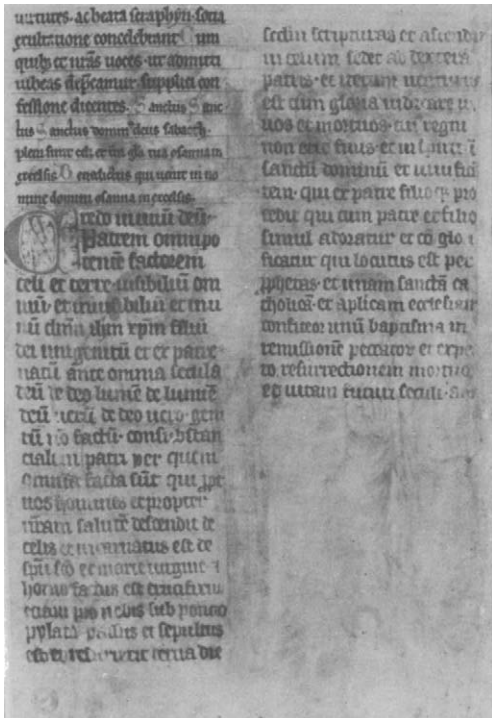 uirtutes. ac beata seraphyn. socia
exultatione concelebrant Cum
quib; et nr̄as uoces. ut admitti
iubeas dep̄camur. supplici con
fessione dicentes. Sanctus Sanc
tus Sanctus domin; deus sabaoth.
pleni sunt celi et t̄ra gl̄a tua osanna in
excelsis. Benedictus qui uenit in no
mine domini osanna in excelsis.
Credo in unū deū.
Patrem omnipo
tentē factorem
celi et terre. uisibiliū om
niū. et inuisibiliū et in u
nū dn̄m ih̄m xp̄m filiū
dei unigenitū et ex patre
natū ante omnia secula
deū de deo lumē de lumīe
deū uerū de deo uero. geni
tū nō factū. consubstan
cialem patri per quem
omnia facta sūt. qui ꝓpt̄
nos homines et propter
nr̄am salutē descendit de
celis et incarnatus est de
sp̄u sc̄o ex marie uirgine
homo factus est crucifixu
etiam pro nobis sub poncio
pylato passus et sepultus
est et resurrexit tercia die
scd̄m scripturas et ascendit
in celum sedet ad dextera
patris. et iterum uenturus
est cum gloria iudicare ui
uos et mortuos. cui; regni
non erit finis et in sp̄m
sanctū dominū et uiuifica
tem. qui ex patre filioq; pro
cedit qui cum patre et filio
simul adoratur et cō glo
ficatur qui locutus est per
ꝓphetas. et unam sanctā ca
tholicā. et ap̄licam ecclesiam
confiteor unū baptisma in
remissionē peccator̄ et expe
to resurrectionem mortuo
et uitam futuri seculi. am